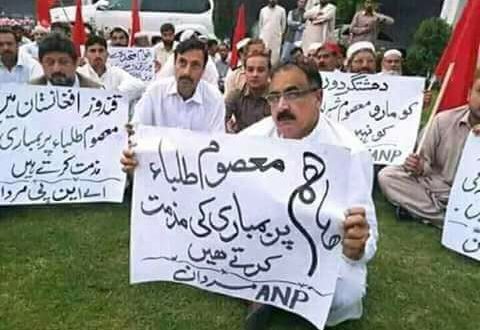 قندوز افغانستان میں
معصوم طلباء پر بمباری
مذمت کرتے ہیں
اے این پی مردان
ہم معصوم طلباء
پر بمباری کی مذمت
کرتے ھیں
ANP مردان
دھشتگردوں
کو مارو معصوم
کو نہیں
ANP